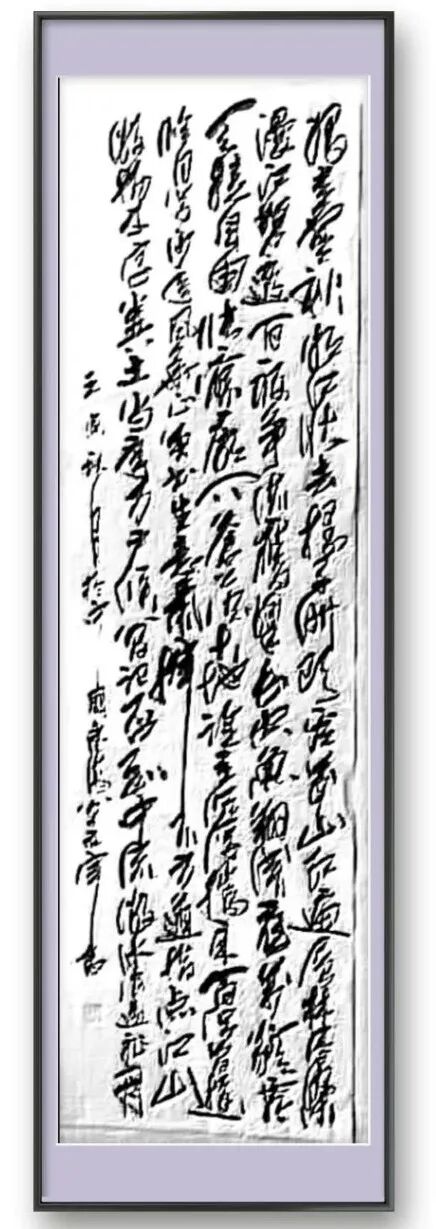 独立寒秋湘江北去橘子洲头看万山红遍层林尽染
漫江碧透百舸争流鹰击长空鱼翔浅底万类霜
天竞自由怅寥廓问苍茫大地谁主沉浮携来百侣曾游
恰同学少年风华正茂书生意气挥斥方遒指点江山
激扬文字粪土当年万户侯曾记否到中流击水浪遏飞舟